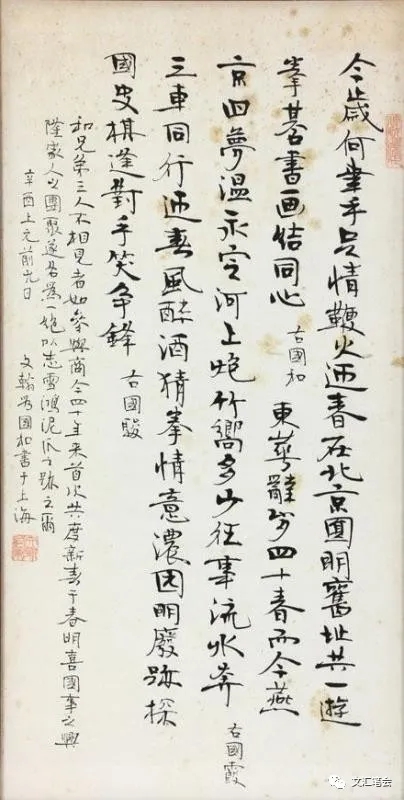 今歲何幸手足情鞭火迎春在北京圓明舊址共一遊
拳棊書画結同心 右國和 東華辭歲四十春而今燕
京旧夢温永定河上炮竹嚮多少往事流水奔 右國霞
三車同行迎春風醉酒猜拳情意濃圓明廢跡探
國史棋逢對手笑争鋒 右國駿
和兄弟三人不相見者如參與商今四十年来首次共度新春于春明喜國事之興
隆家人之團聚遂各為一絶以志雪鴻泥爪之跡云爾
辛酉上元前九日
文翰 國和書于上海
文汇笔会